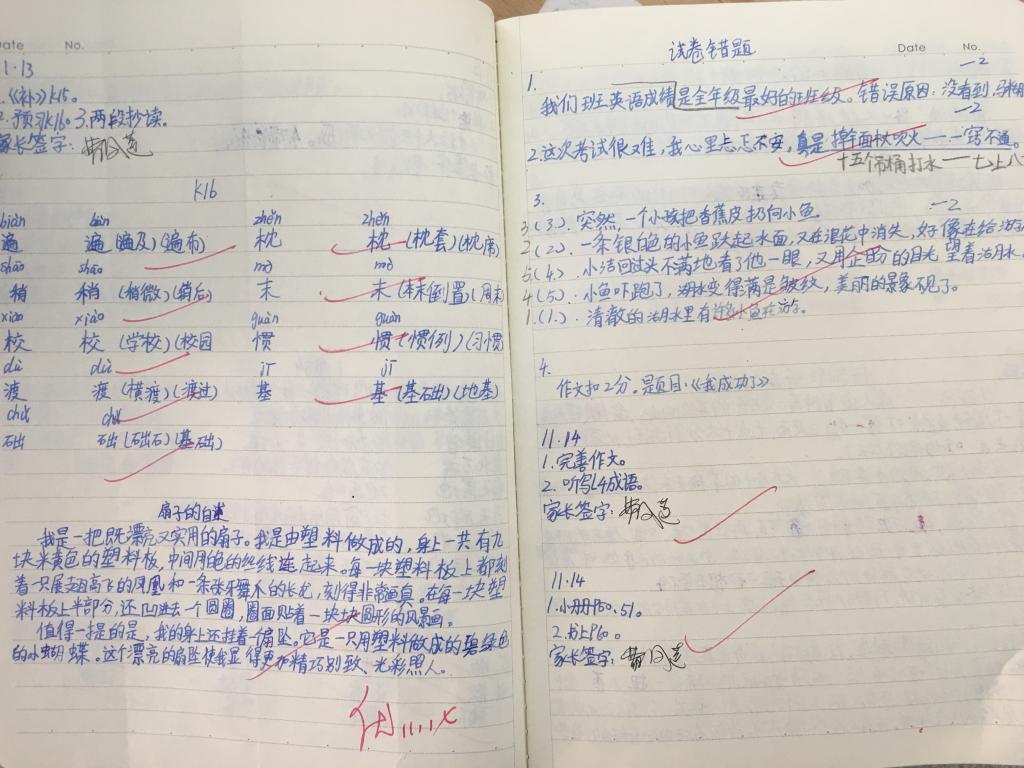 Date No.
1.13
1.《补》K15。
2.预习K16。3.两段抄读。
家长签字:
K16
biàn biàn zhěn zhěn
遍 遍(遍及)(遍布) 枕 枕(枕套)(枕席)
shāo shāo mò mò
稍 稍(稍微)(稍后) 末 末(本末倒置)(周末
xiào xiào guàn guàn
校 校(学校)(校园 惯 惯(惯例)(习惯
dù dù jī jī
渡 渡(横渡)(渡过) 基 基(基础)(地基)
chǔ chǔ
础 础(础石)(基础)
扇子的自述
我是一把既漂亮又实用的扇子。我是由塑料做成的,身上一共有九
块米黄色的塑料板,中间用色的丝线连起来。每一块塑料板上都刻
着一只展翅高飞的凤凰和一条张牙舞爪的长龙,刻得非常逼真。在每一块塑
料板上半部分,还凹进去一个圆圈,圈面贴着一块块圆形的风景画。
值得一提的是,我的身上还挂着个扇坠。它是一只用塑料做成的碧绿色
的小蝴蝶。这个漂亮的扇坠使我显得更加精巧别致、光彩照人。
优 11.1
试卷错题
Date No.
1. 一2
我们班英语成绩是全年级最好的班级。错误原因:没看到,马虎
一2
2.这次考试很难,我心里忐忑不安,真是擀面杖吹火——一窍不通。
十五个吊桶打水——七上八
3. 一2
3(3).突然,一个小孩把香蕉皮扔向小鱼。
2(2).一条银白色的小鱼跃起水面,又在浪花中消失,好像在给游
5(4).小洁回过头不满地看了他一眼,又用企盼的目光望着湖水。
4(5).小鱼吓跑了,湖水变得满是皱纹,美丽的景象不见了。
1.(1).清澈的湖水里有许多小鱼在游。
4.
作文扣2分。是题目:《我成功了》
11.14
1.完善作文。
2.听写L4成语。
家长签字:
11.14
1.小册P50、51。
2.书上P60。
家长签字: